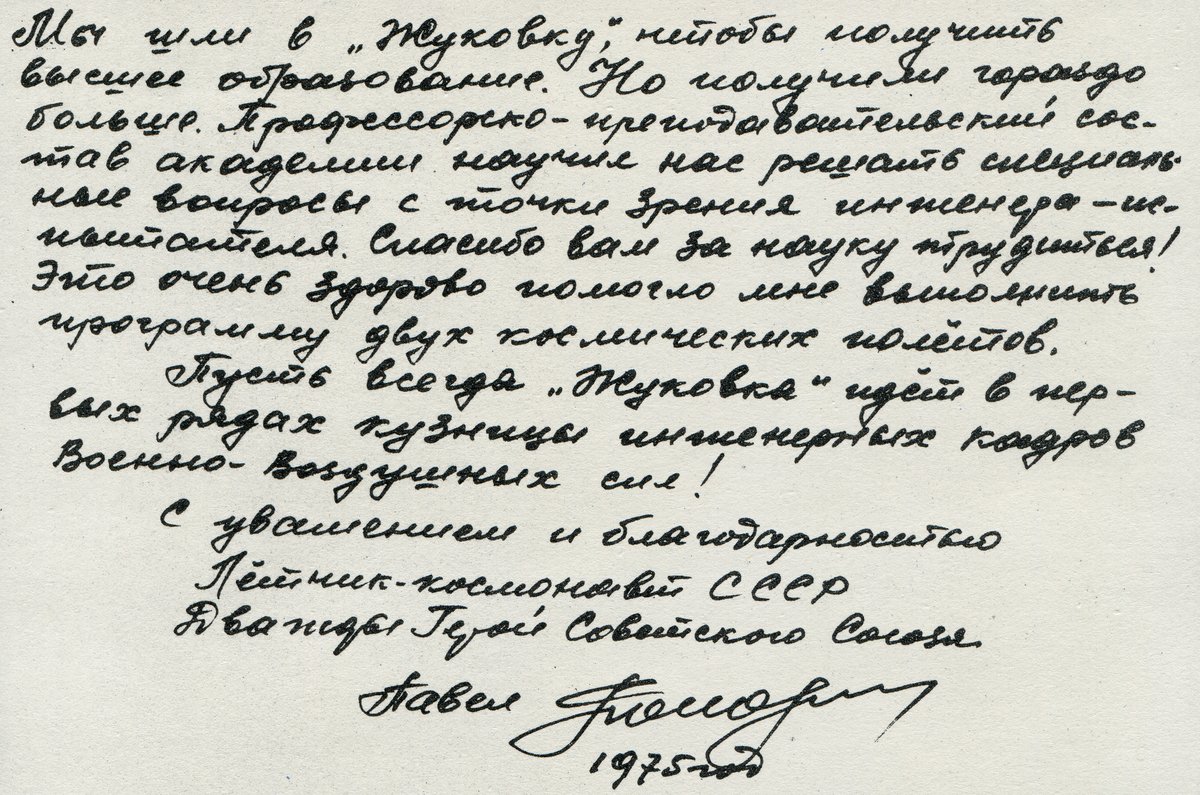 Мы шли в „Жуковку“, чтобы получить
высшее образование. Но получили гораздо
больше. Профессорско-преподавательский сос-
тав академии научил нас решать специаль-
ные вопросы с точки зрения инженера-ис-
пытателя. Спасибо вам за науку трудиться!
Это очень здорово помогло мне выполнить
программу двух космических полётов.
Пусть всегда „Жуковка“ идёт в пер-
вых рядах кузницы инженерных кадров
Военно-Воздушных сил!
С уважением и благодарностью
Лётчик-космонавт СССР
Дважды Герой Советского Союза
Павел Попович
1975 год